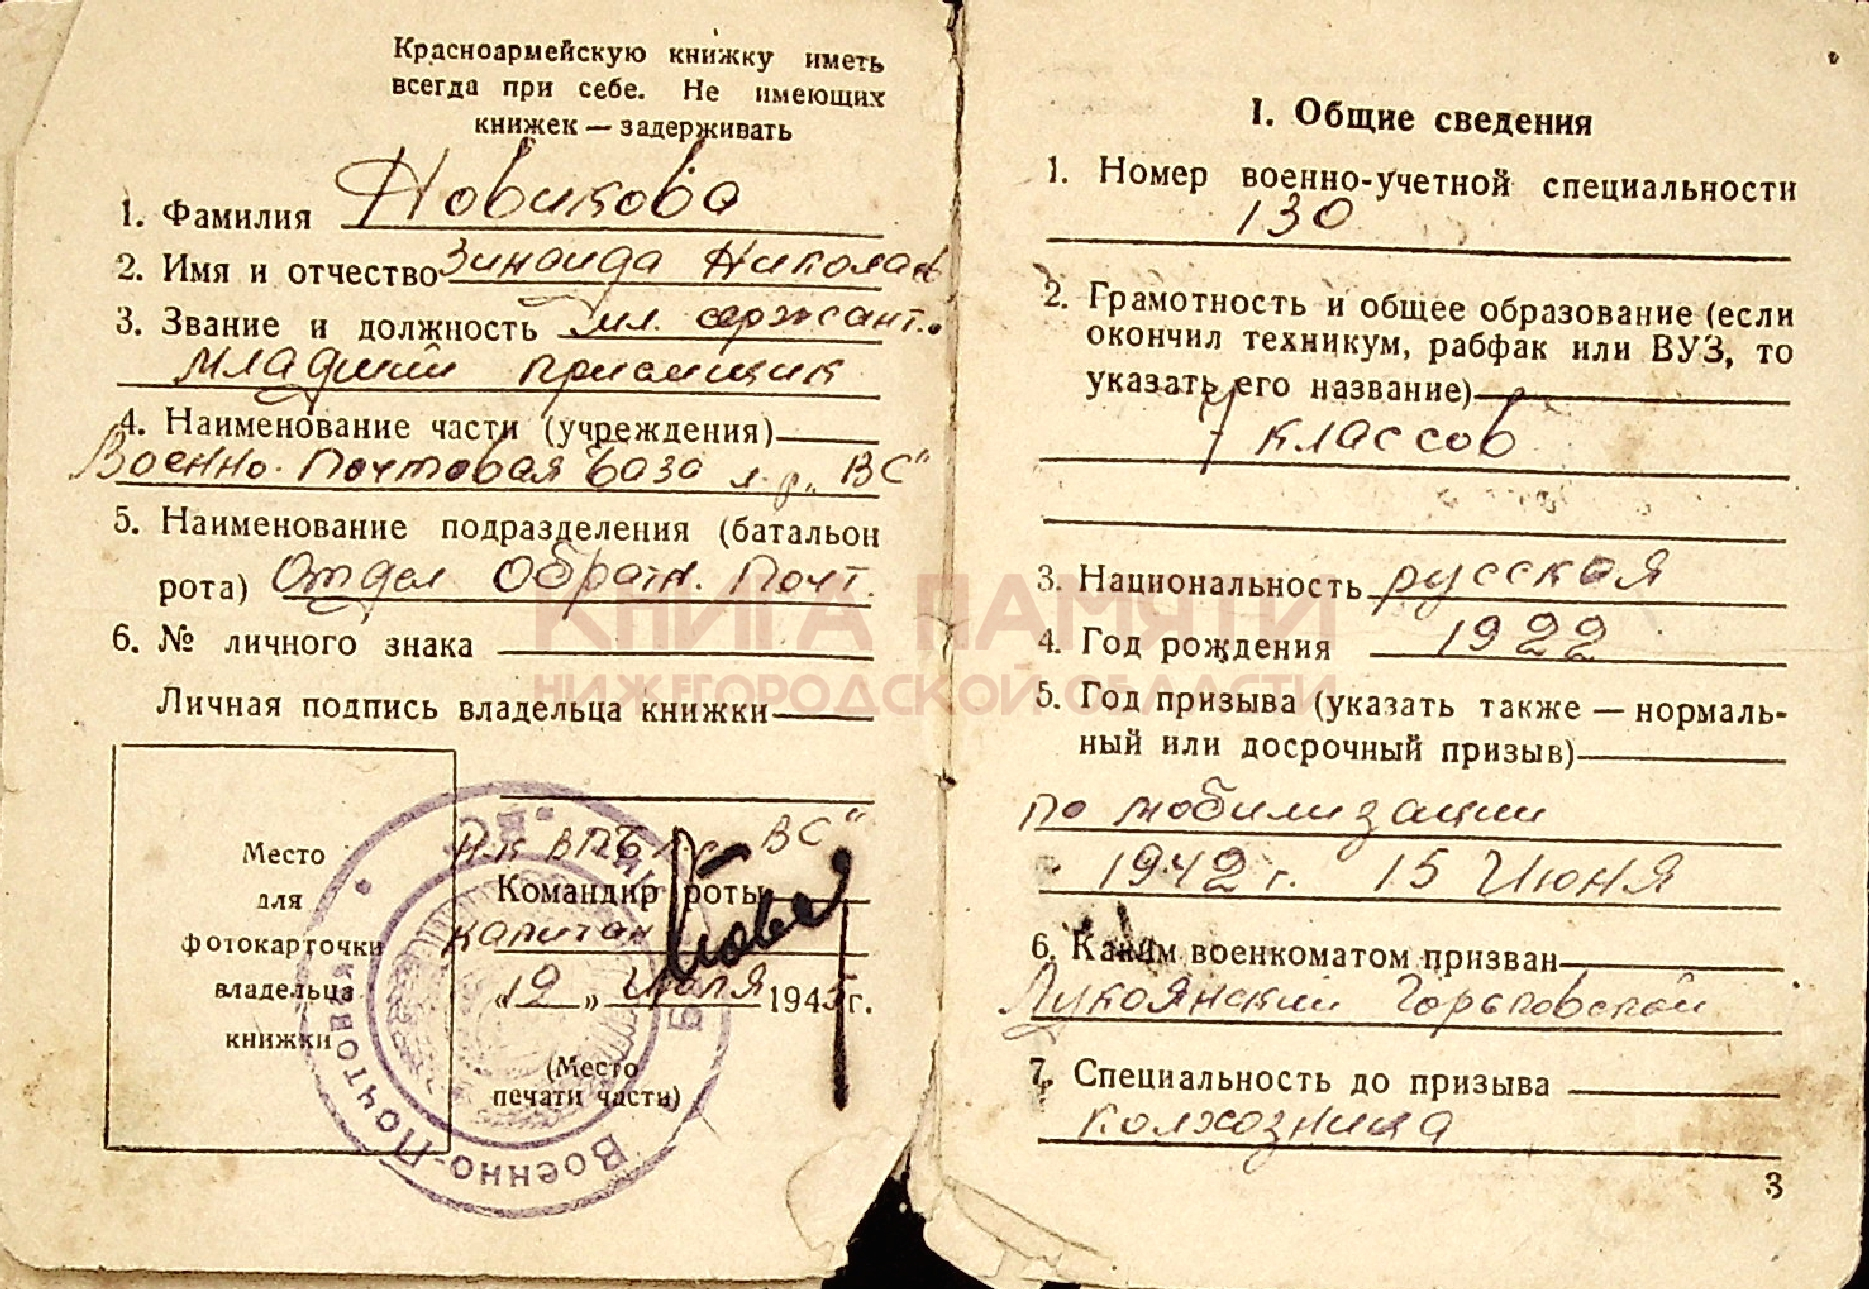 Красноармейскую книжку иметь
всегда при себе. Не имеющих
книжек — задерживать
1. Фамилия Новикова
2. Имя и отчество Зинаида Николаев
3. Звание и должность мл. сержант.
младший приемщик
4. Наименование части (учреждения)
Военно-Почтовая база л.р. „ВС"
5. Наименование подразделения (батальон
рота) Отдел Обратн. Почт.
6. № личного знака
Личная подпись владельца книжки
Место
для
фотокарточки
владельца
книжки
Н-к ВПБ „ВС"
Командир роты
капитан
«12» июля 1945 г.
(Место
печати части)
Военно-Почтовая База
I. Общие сведения
1. Номер военно-учетной специальности
130
2. Грамотность и общее образование (если
окончил техникум, рабфак или ВУЗ, то
указать его название)
7 классов
3. Национальность русская
4. Год рождения 1922
5. Год призыва (указать также — нормаль-
ный или досрочный призыв)
по мобилизации
1942 г. 15 Июня
6. Каким военкоматом призван
Лукоянский Горьковской
7. Специальность до призыва
колхозница
3
КНИГА ПАМЯТИ
НИЖЕГОРОДСКОЙ ОБЛАСТИ